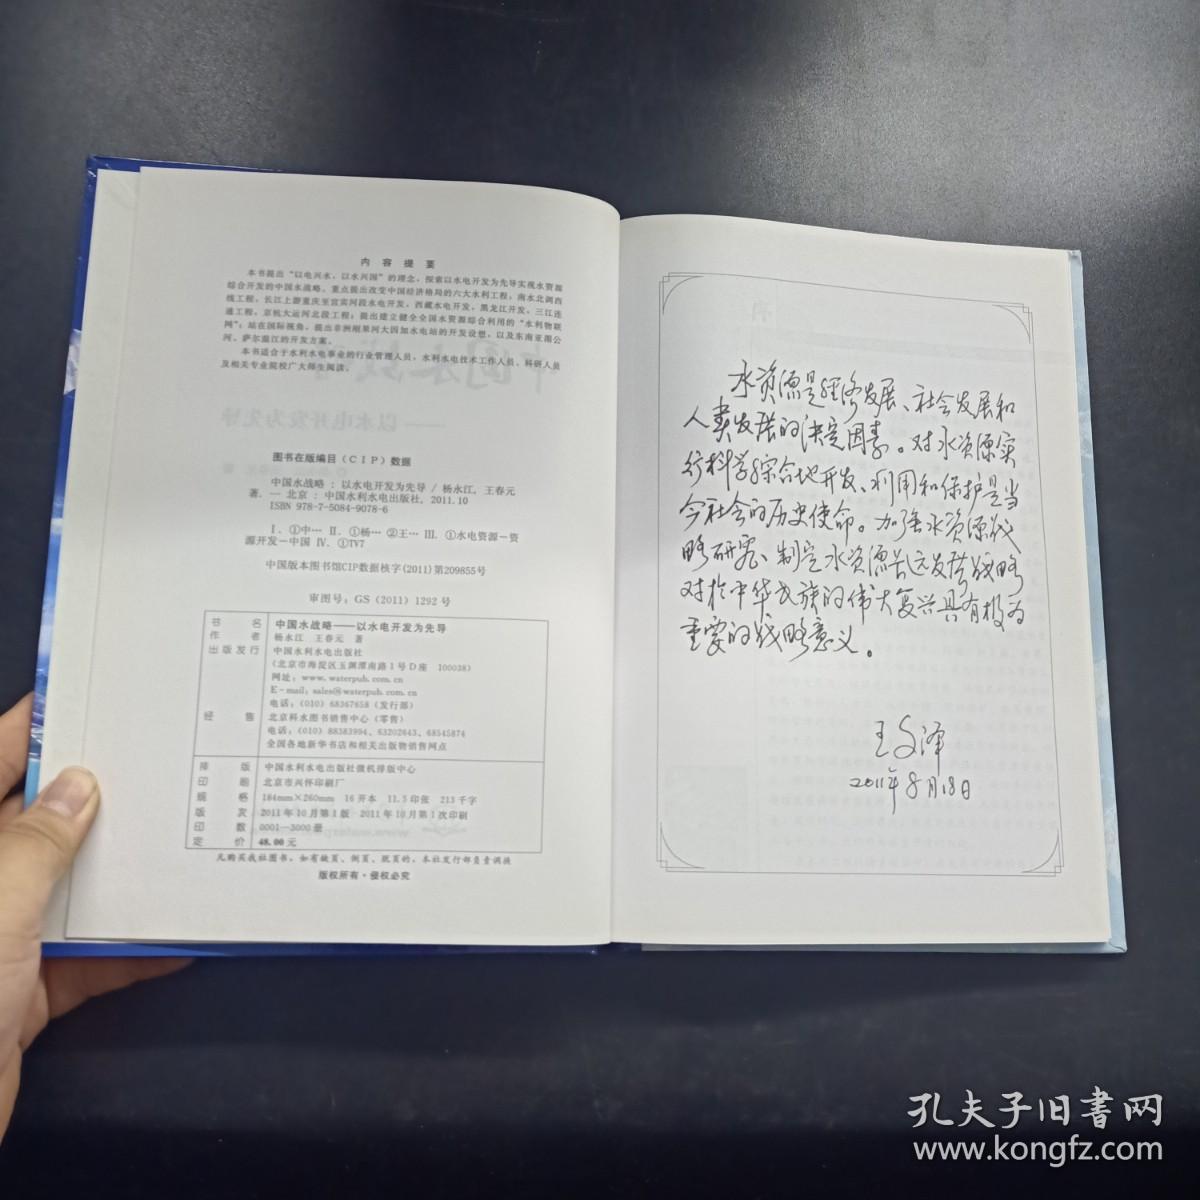 内 容 提 要
本书提出“以电兴水，以水兴国”的理念，探索以水电开发为先导实现水资源
综合开发的中国水战略。重点提出改变中国经济格局的六大水利工程：南水北调西
线工程，长江上游重庆至宜宾河段水电开发，西藏水电开发，黑龙江开发，三江连
通工程，京杭大运河北段工程；提出建立健全全国水资源综合利用的“水利物联
网”；站在国际视角，提出非洲刚果河大因加水电站的开发设想，以及东南亚湄公
河、萨尔温江的开发方案。
本书适合于水利水电事业的行业管理人员，水利水电技术工作人员、科研人员
及相关专业院校广大师生阅读。
图书在版编目（CIP）数据
中国水战略：以水电开发为先导 / 杨永江，王春元
著. — 北京：中国水利水电出版社，2011.10
ISBN 978-7-5084-9078-6
Ⅰ. ①中… Ⅱ. ①杨… ②王… Ⅲ. ①水电资源－资
源开发－中国 Ⅳ. ①TV7
中国版本图书馆CIP数据核字(2011)第209855号
审图号：GS（2011）1292 号
书 名 中国水战略——以水电开发为先导
作 者 杨永江 王春元 著
出版发行 中国水利水电出版社
（北京市海淀区玉渊潭南路1号D座 100038）
网址：www.waterpub.com.cn
E-mail：sales@waterpub.com.cn
电话：（010）68367658（发行部）
经 售 北京科水图书销售中心（零售）
电话：（010）88383994、63202643、68545874
全国各地新华书店和相关出版物销售网点
排 版 中国水利水电出版社微机排版中心
印 刷 北京市兴怀印刷厂
规 格 184mm×260mm 16开本 11.5印张 213千字
版 次 2011年10月第1版 2011年10月第1次印刷
印 数 0001—3000册
定 价 48.00元
凡购买我社图书，如有缺页、倒页、脱页的，本社发行部负责调换
版权所有·侵权必究
水资源是经济发展、社会发展和
人类发展的决定因素。对水资源实
行科学综合地开发、利用和保护是当
今社会的历史使命。加强水资源战
略研究、制定水资源长远发展战略
对于中华民族的伟大复兴具有极为
重要的战略意义。
王文泽
2011年8月18日
孔夫子旧书网
www.kongfz.com